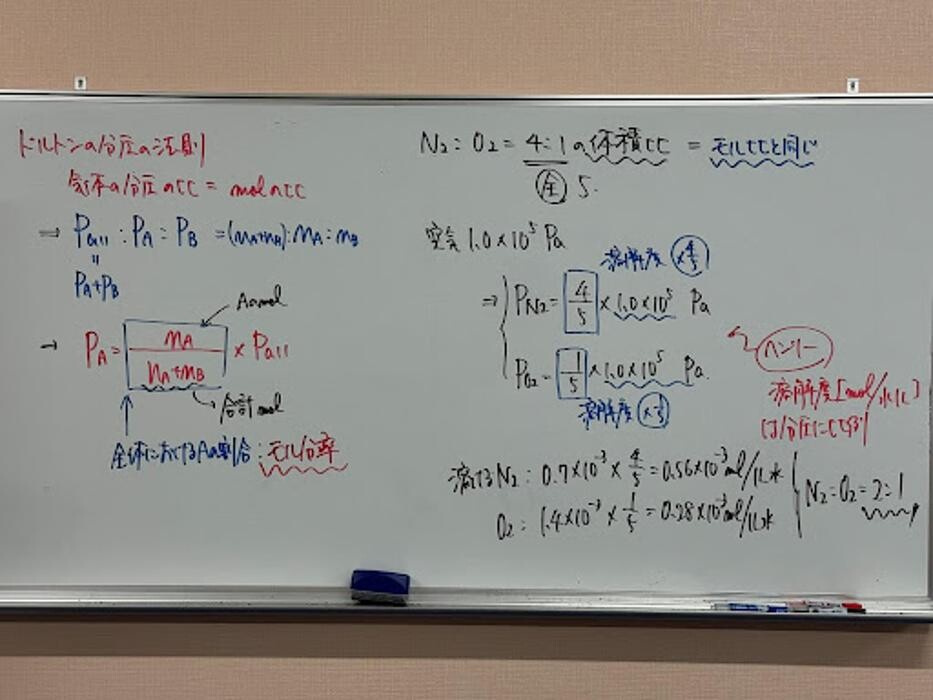 ドルトンの分圧の法則
気体の分圧の比 = molの比
⇒ Pall : PA : PB = (nA+nB) : nA : nB
〃
PA+PB
Aのmol
→ PA = nA / nA+nB × Pall
合計mol
全体におけるAの割合 : モル分率
N2 : O2 = 4:1の体積比 = モル比と同じ
全 5.
空気 1.0×10⁵ Pa
溶解度 ×4/5
⇒ PN2 = 4/5 × 1.0×10⁵ Pa
PO2 = 1/5 × 1.0×10⁵ Pa.
溶解度 ×1/5
ヘンリー
溶解度[mol/水1L]
は分圧に比例
溶けるN2 : 0.7×10⁻³ × 4/5 = 0.56×10⁻³ mol/1L水
O2 : 1.4×10⁻³ × 1/5 = 0.28×10⁻³ mol/1L水
N2 : O2 = 2:1